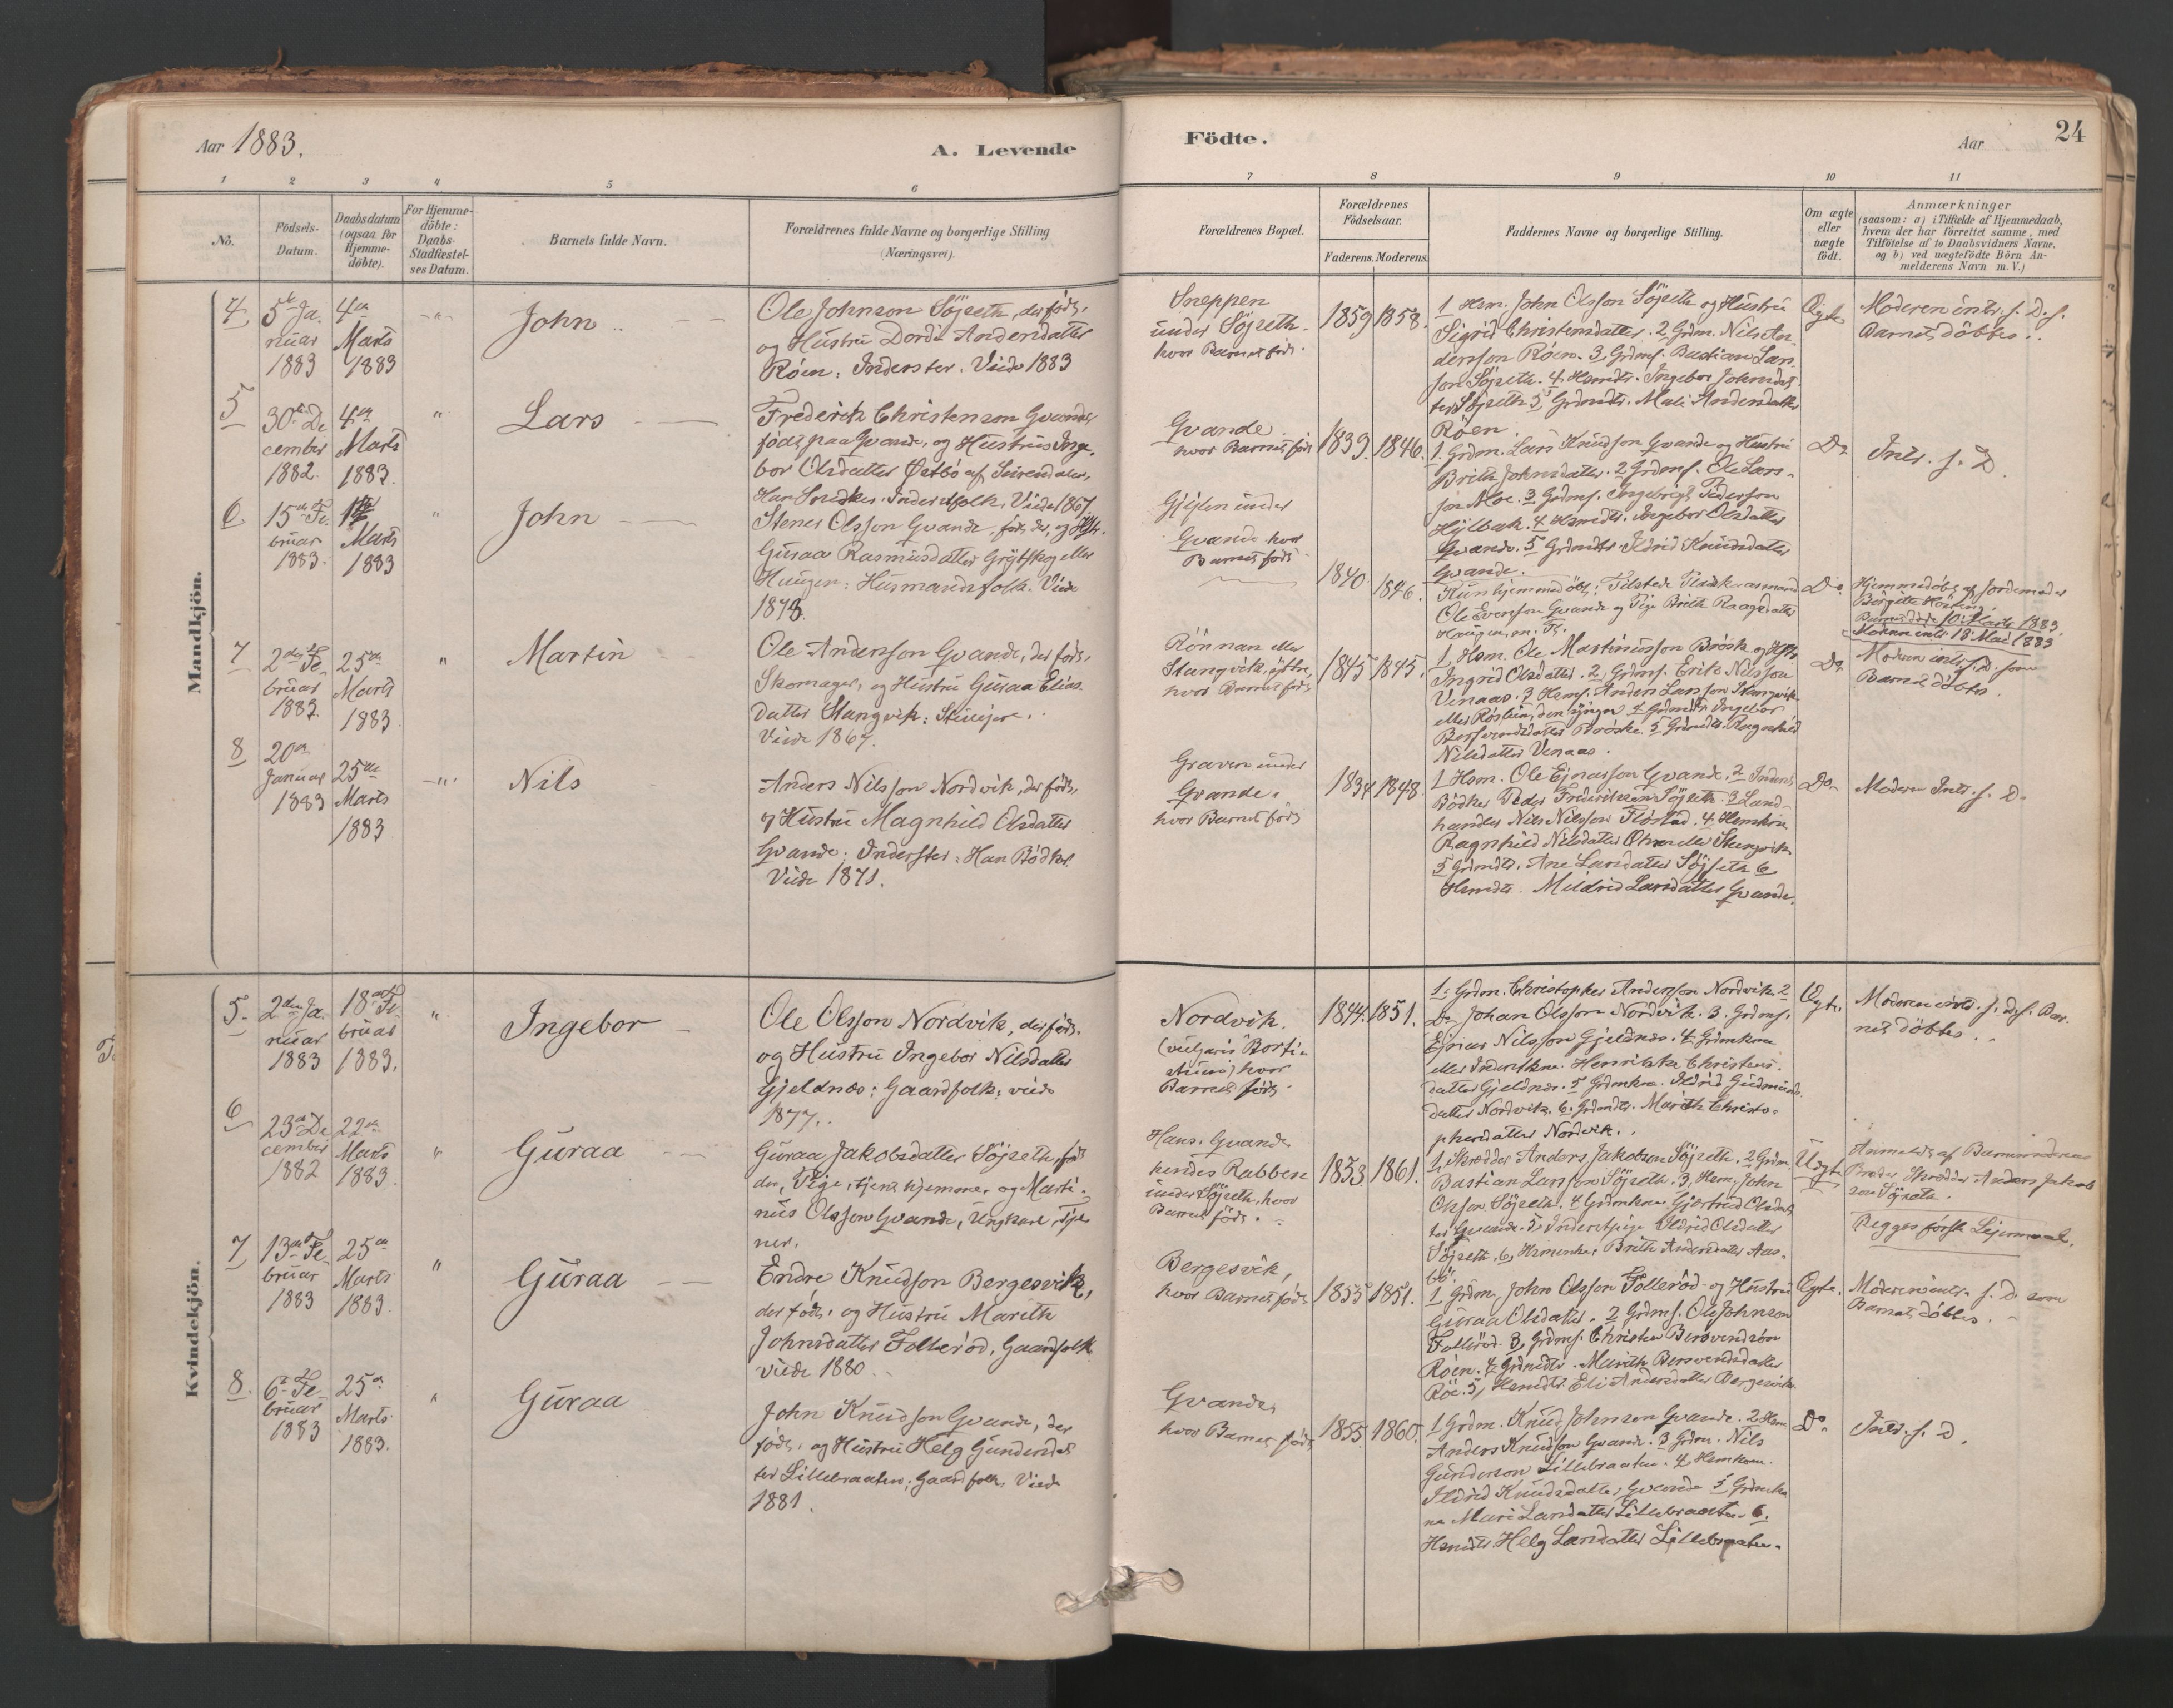 Aar 1883.
A. Levende
Födte.
Aar
24
1 2 3 4 5 6 7 8 9 10 11
No.
Födsels-
Datum.
Daabsdatum
(ogsaa for
Hjemme-
döbte).
For Hjemme-
döbte:
Daabs-
Stadfæstel-
ses Datum.
Barnets fulde Navn.
Forældrenes fulde Navne og borgerlige Stilling
(Næringsvei).
Forældrenes Bopæl.
Forældrenes
Födselsaar.
Faderens. Moderens.
Faddernes Navne og borgerlige Stilling.
Om ægte
eller
uægte
födt.
Anmærkninger
(saasom: a) i Tilfælde af Hjemmedaab,
hvem der har forrettet samme, med
Tilföielse af to Daabsvidners Navne.
og b) ved uægtefödte Börn An-
melderens Navn m. V.)
Mandkjön.
4
5 Ja-
nuar
1883
4
Marts
1883
John
Ole Johnson Söjseth, der föd,
og Hustru Dordi Andersdatter
Röen. Inderster. Viede 1883
Sneppen
under Söjseth
hvor Barnet föd.
1859 1858.
1 Hsm. John Olsson Söjseth og Hustru
Sigrid Christensdatter. 2 Grdm. Nils An-
dersson Röen. 3 Grdms. Bastian Lars-
son Söjseth. 4 Hsmdtr. Ingebor Johnsdat-
ter Söjseth 5 Grdmdtr. Mali Andersdatter
Röen.
Ægte
Moderen intr. s. D. s.
Barnet döbtes.
5
30 De-
cember
1882.
4
Marts
1883.
Lars
Frederik Christensen Gvande,
föd paa Gvande, og Hustru Inge-
bor Olsdatter Östbö af Surendalen,
Han Snedker. Inderstfolk. Viede 1867
Gvande
hvor Barnet föd
1839. 1846.
1. Grdm. Lars Knudson Gvande og Hustru
Brith Johnsdatter. 2 Grdms. Ole Lars-
son Moe. 3 Grdms. Ingebrigt Pederson
Hylbak. 4 Hsmdtr. Ingebor Olsdatter
Gvande. 5 Grdmdtr. Ildrid Knudsdatter
Gvande.
Do.
Intr. s. D.
6
15 Fe-
bruar
1883.
Marts
1883
John
Stener Olsson Gvande, föd der, og Hstr.
Guraa Rasmusdatter Grytskog eller
Haugen: Husmandsfolk. Viede
1873.
Gjeilen under
Gvande hvor
Barnet föd
1840. 1846.
Kun hjemmedöbt; Tilstede
Ole Evenson Gvande og Pige Brith Roaldsdatter
Haugen
Do.
Hjemmedöbt af Jordemoder
Bergitte
Barnet döde 10 Marts 1883
Moderen intr. 18 Mai 1883
7
2den Fe-
bruar
1883.
25de
Marts
1883
Martin
Ole Anderson Gvande, der föd,
Skomager, og Hustru Guraa Elias-
datter Stangvik: Selvejere.
Viede 1867.
Rönnan eller
Stangvik, östre,
hvor Barnet föd
1845 1845.
1 Hsm. Ole Martinusson Bröske og Hstr.
Ingrid Olsdatter. 2 Grdms. Erik Nilsson
Venaas. 3 Hsms. Anders Larsson Stangvik
eller Röslien, den yngre 4 Grdmdtr. Ingebor
Bersvendsdatter Bröske. 5 Grdmdtr. Ragnhild
Nilsdatter Venaas.
Do.
Moderen intr. s. D. som
Barnet döbtes.
8
20
Januar
1883
25de
Marts
1883
Nils
Anders Nilsson Nordvik, der föd,
og Hustru Magnhild Olsdatter
Gvande: Inderster: Han Bödker.
Viede 1871.
Graven under
Gvande,
hvor Barnet föd
1834 1848.
1 Hsm. Ole Ejnarsson Gvande, 2 Inderst,
Bödker Peder Frederiksen Söjseth. 3 Land-
handler Nils Nilsson Flöstad. 4 Hsmkone
Ragnhild Nilsdatter eller Stangvik
5 Grdmdtr. Ane Larsdatter Söjseth 6
Hsmdtr. Mildrid Larsdatter Gvande.
Do.
Moderen Intr. s. D.
Kvindekjön.
5.
2den Ja-
nuar
1883
18 Fe-
bruar
1883.
Ingebor
Ole Olsson Nordvik, der föd,
og Hustru Ingebor Nilsdatter
Gjeldnæs: Gaardfolk: viede
1877.
Nordvik,
(vulgaris Borti-
stuen) hvor
Barnet föd.
1844. 1851.
1. Grdm. Christopher Anderson Nordvik. 2
Do Johan Olsson Nordvik. 3. Grdms.
Ejnar Nilsson Gjeldnæs. 4. Grdmkone
eller Inderstkone. Henrikke Christens-
datter Gjeldnæs. 5 Grdmkone. Ildrid Gudmunds-
datter Nordvik. 6. Grdmdtr. Marith Christo-
phersdatter Nordvik.
Ægte.
Moderen intr. s. D. s. Bar-
net döbtes.
6
23 De-
cember
1882
22de
Marts
1883.
Guraa
Guraa Jakobsdatter Söjseth, föd
der, Pige, tjent hjemme, og Marti-
nus Olsson Gvande, Ungkarl, Tje-
ner.
Hans: Gvande
hendes Rabben
under Söjseth, hvor
Barnet föd.
1853. 1861.
1, Skrædder Anders Jakobsen Söjseth. 2 Grdm.
Bastian Larsson Söjseth. 3, Hsm. John
Olsson Söjseth. 4 Grdmkone. Gjertrud Olsdat-
ter Gvande. 5 Inderstpige Ildrid Olsdatter
Söjseth. 6, Hsmenke, Brith Andersdatter Aas-
bö.
Uægte
Anmeldt af Barnemoderens
Broder, Skrædder Anders Jakob-
son Söjseth.
Begges förste Lejermaal.
7
13 Fe-
bruar
1883
25
Marts
1883.
Guraa
Endre Knudson Bergesvik,
der föd, og Hustru Marith
Johnsdatter Follerød, Gaardfolk
viede 1880.
Bergesvik,
hvor Barnet föd
1853 1851.
1 Grdm. John Olsson Follerød og Hustru
Guraa Olsdatter. 2 Grdms. Ole Johnson
Follerød. 3, Grdms. Christen Bersvendson
Röen. 4 Grdmdtr. Marith Bersvendsdatter
Röe. 5, Hsmdtr. Eli Andersdatter Bergesvik.
Ægte.
Moderen intr. s. D. som
Barnet döbtes.
8.
6 Fe-
bruar
1883
25
Marts
1883.
Guraa
John Knudson Gvande, der
föd, og Hustru Helg Gundersdat-
ter Lillebraaten; Gaardfolk, Viede
1881.
Gvande,
hvor Barnet föd
1855. 1860.
1 Grdm. Knud Johnson Gvande. 2 Hsm.
Anders Knudson Gvande. 3 Grdm. Nils
Gunderson Lillebraaten. 4 Hsmkone.
Ildrid Knudsdatter Gvande 5 Grdmko-
ne Mari Larsdatter Lillebraaten. 6.
Hsmdtr. Helg Larsdatter Lillebraaten.
Do.
Intr. s. D.